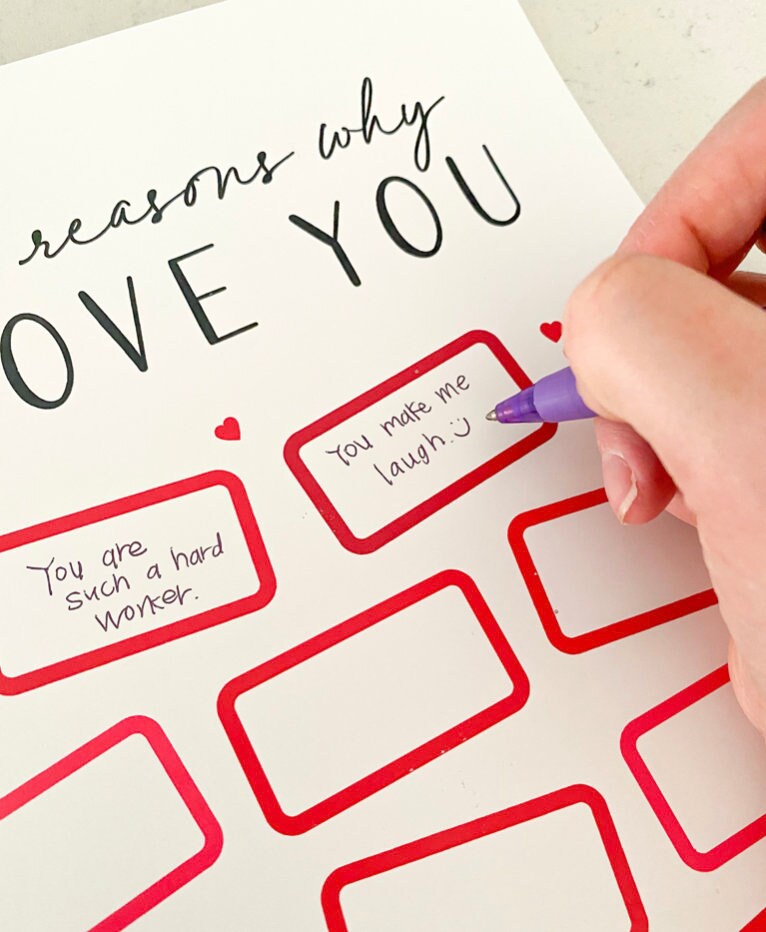 reasons why
OVE YOU
You make me
laugh. :)
You are
such a hard
worker.